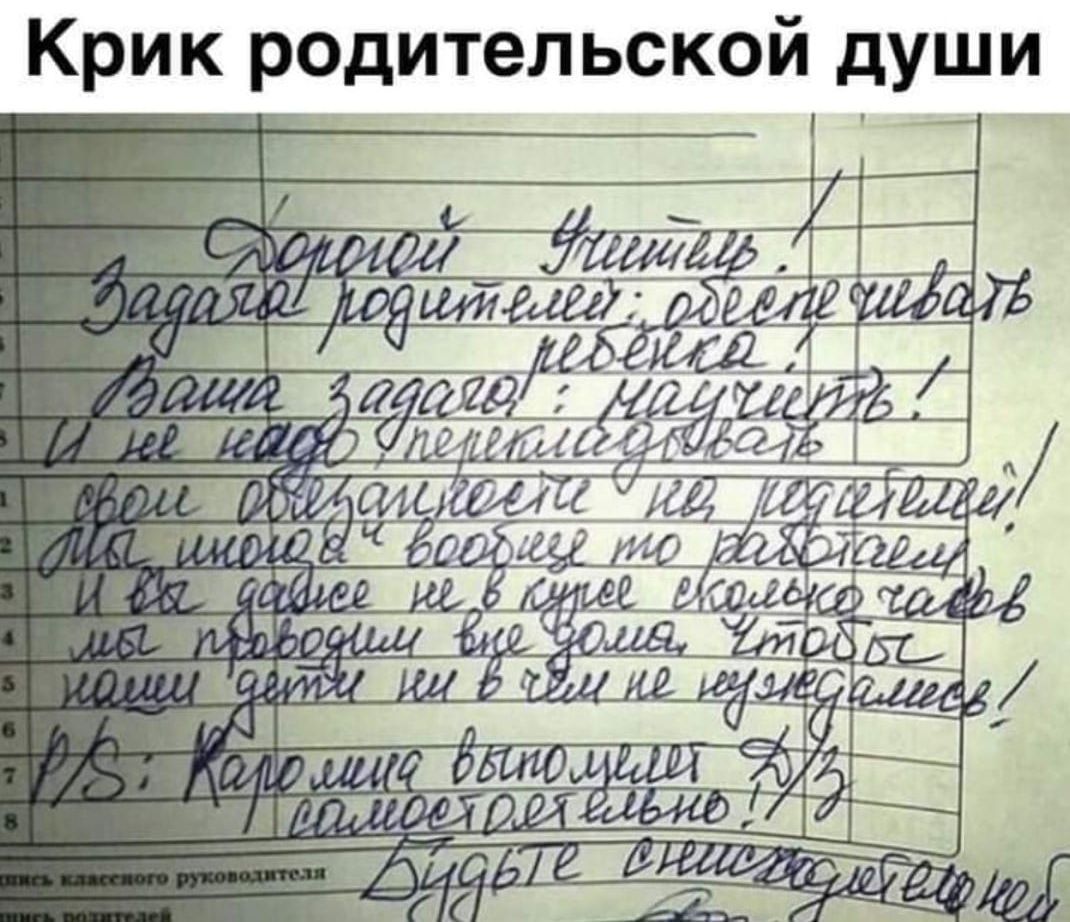 Крик родительской души
Дорогой Учитель!
Задача родителей: обеспечивать
ребёнка!
Ваша задача: научить!
И не надо перекладывать
свои обязанности на родителей!
Мы иногда вообще то работаем
И вы даже не в курсе сколько часов
мы проводим вне дома, чтобы
наши дети ни в чём не нуждались!
P/S: Каролина выполняет Д/З
самостоятельно!
Будьте снисходительней
пись классного руководителя
пись родителей